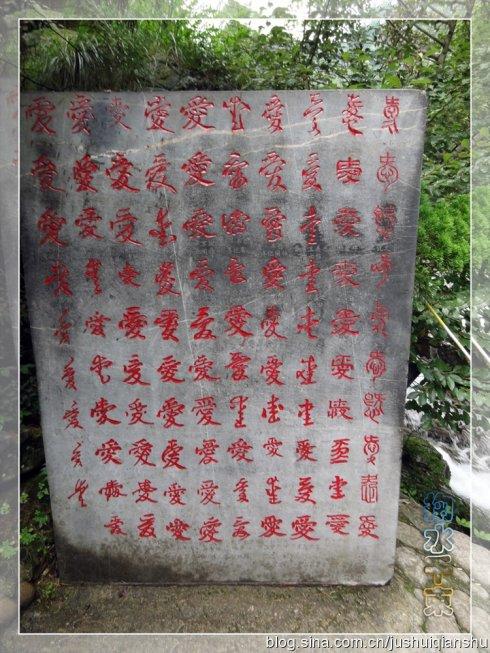 愛愛愛愛愛愛愛愛愛愛
愛愛愛愛愛愛愛愛愛愛
愛愛愛愛愛愛愛愛愛愛
愛愛愛愛愛愛愛愛愛愛
愛愛愛愛愛愛愛愛愛愛
愛愛愛愛愛愛愛愛愛愛
愛愛愛愛愛愛愛愛愛愛
愛愛愛愛愛愛愛愛愛愛
愛愛愛愛愛愛愛愛愛愛
愛愛愛愛愛愛愛愛愛
blog.sina.com.cn/jushuiqianshu